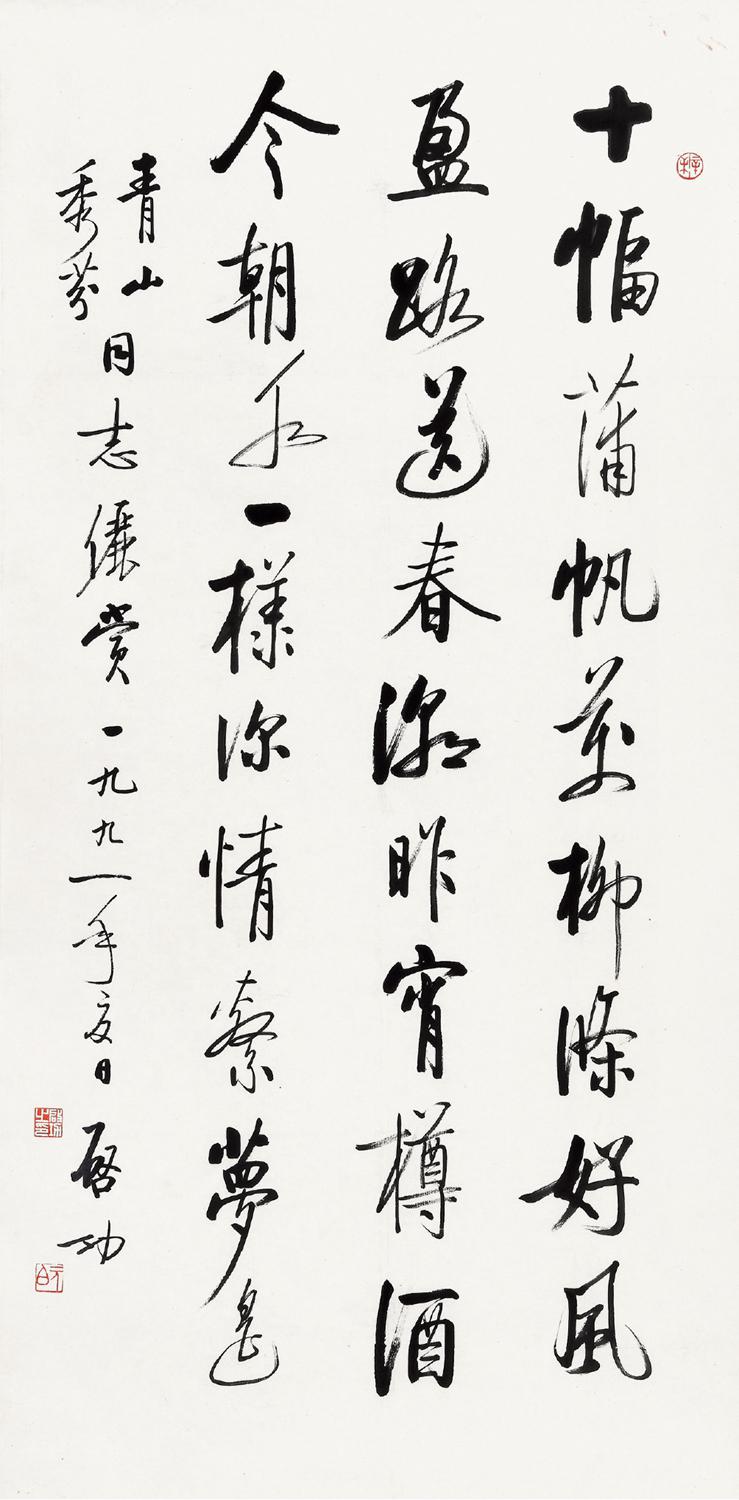 十幅蒲帆萬柳條好風
盈路送春潮昨宵樽酒
今朝水一樣深情繫夢遙
青山
秀芬
同志儷賞一九九一年夏日
啓功
啟功之印
元白